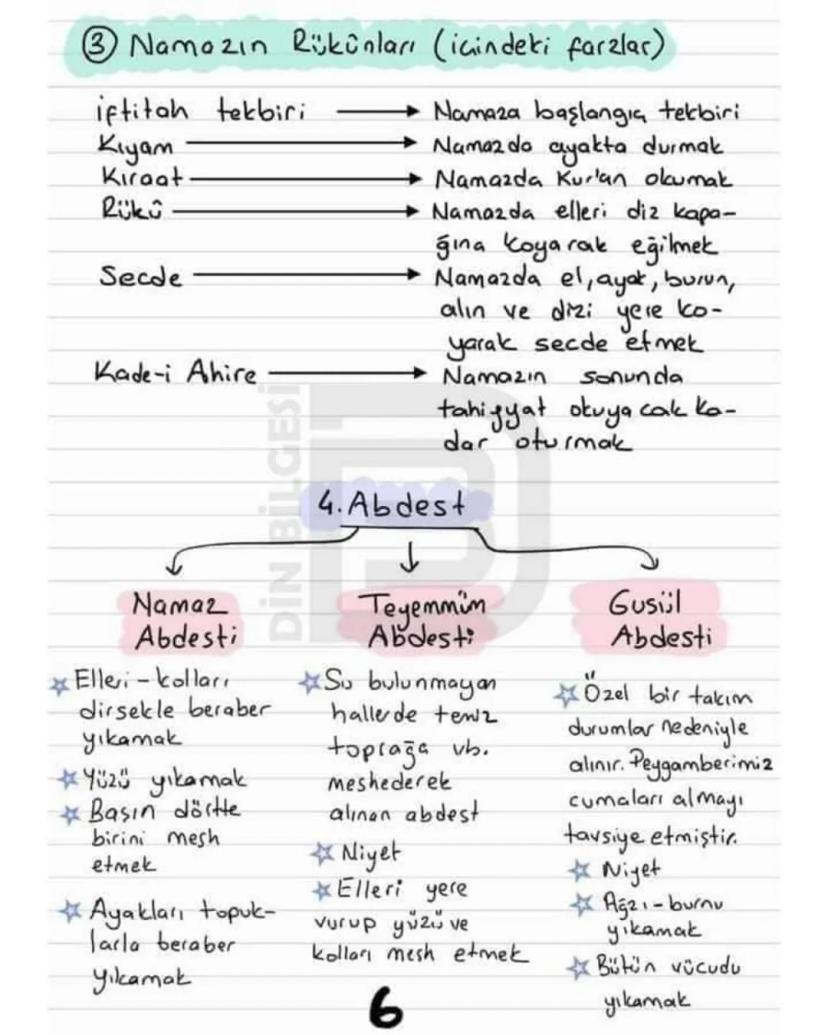 ③ Namazın Rükûnları (içindeki farzlar)
iftitah tekbiri → Namaza başlangıç tekbiri
Kıyam → Namazda ayakta durmak
Kıraat → Namazda Kur'an okumak
Rükû → Namazda elleri diz kapa-
ğına koyarak eğilmek
Secde → Namazda el, ayak, burun,
alın ve dizi yere ko-
yarak secde etmek
Kade-i Ahire → Namazın sonunda
tahiyyat okuyacak ka-
dar oturmak
DİN BİLGESİ
4. Abdest
Namaz
Abdesti
☆ Elleri - kolları
dirsekle beraber
yıkamak
☆ Yüzü yıkamak
☆ Başın dörtte
birini mesh
etmek
☆ Ayakları topuk-
larla beraber
yıkamak
Teyemmüm
Abdesti
☆ Su bulunmayan
hallerde temiz
toprağa vb.
meshederek
alınan abdest
☆ Niyet
☆ Elleri yere
vurup yüzü ve
kolları mesh etmek
Gusül
Abdesti
☆ Özel bir takım
durumlar nedeniyle
alınır. Peygamberimiz
cumaları almayı
tavsiye etmiştir.
☆ Niyet
☆ Ağzı - burnu
yıkamak
☆ Bütün vücudu
yıkamak
6